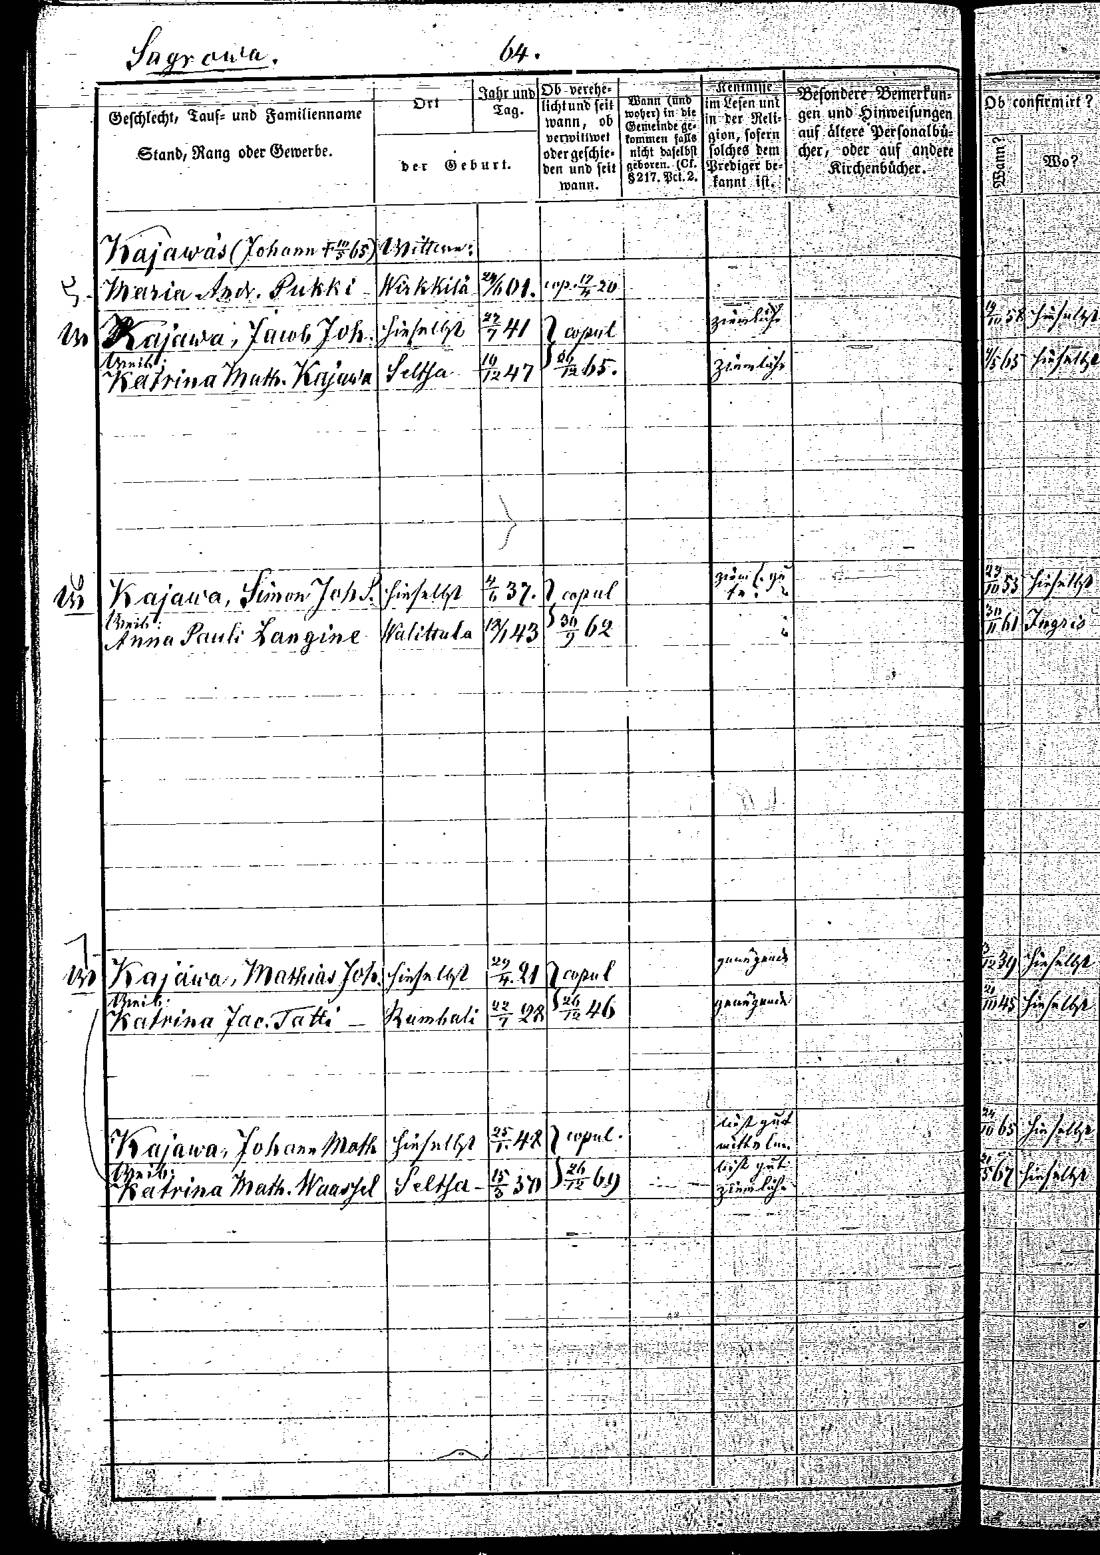 Sagrowa.
64.
Geschlecht, Tauf- und Familienname
Stand, Rang oder Gewerbe.
Ort
der Geburt.
Jahr und
Tag.
Ob verehe-
licht und seit
wann, ob
verwittwet
oder geschie-
den und seit
wann.
Wann (und
woher) in die
Gemeinde ge-
kommen falls
nicht daselbst
geboren. (Cf.
§ 217. Pct. 2.
Kentniße
im Lesen und
in der Reli-
gion, sofern
solches dem
Prediger be-
kannt ist.
Besondere Bemerkun-
gen und Hinweisungen
auf ältere Personalbü-
cher, oder auf andere
Kirchenbücher.
Ob confirmirt?
Wann?
Wo?
Kajawas (Johann † 10/5 65) Wittwe:
Maria Andr. Pukki - Wirkkilä 24/6 01. cop. 17/4 20
Kajawa, Jacob Joh. hieselbst 27/7 41 copul ziemlich 58 hieselbst
Weib:
Katrina Math. Kajawa Seltsa 19/12 47 26/12 65. ziemlich 65 hieselbst
Kajawa, Simon Joh. S. hieselbst 4/6 37. copul 53 hieselbst
Weib:
Anna Pauli Langine Walittula 12/1 43 30/9 62 61 Ingris
Kajawa, Mathias Joh. hieselbst 29/4. 21 copul genügend 39 hieselbst
Weib:
Katrina Jac. Tatti - Rumbali 22/7 28 26/12 46 genügend 45 hieselbst
Kajawa, Johann Math hieselbst 25/1. 48 copul. liest gut
65 hieselbst
Weib:
Katrina Math. Waassel Seltsa - 15/3 50 26/12 69 liest gut
ziemlich 67 hieselbst